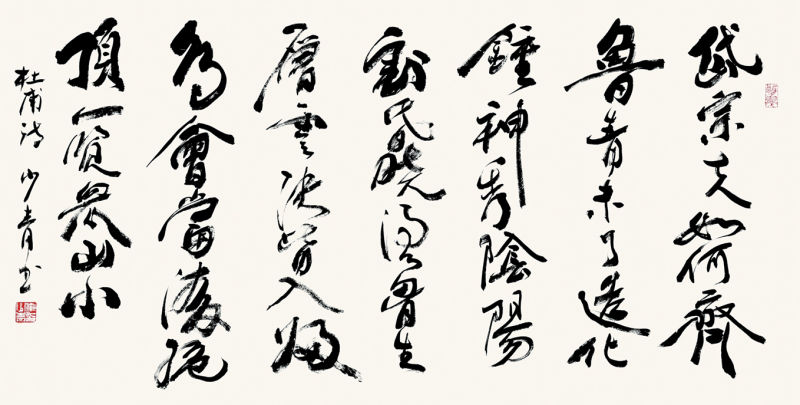 岱宗夫如何齊
魯青未了造化
鍾神秀陰陽
割昏曉盪胸生
層雲決眥入歸
鳥會當凌絕
頂一覽眾山小
杜甫詩少青書